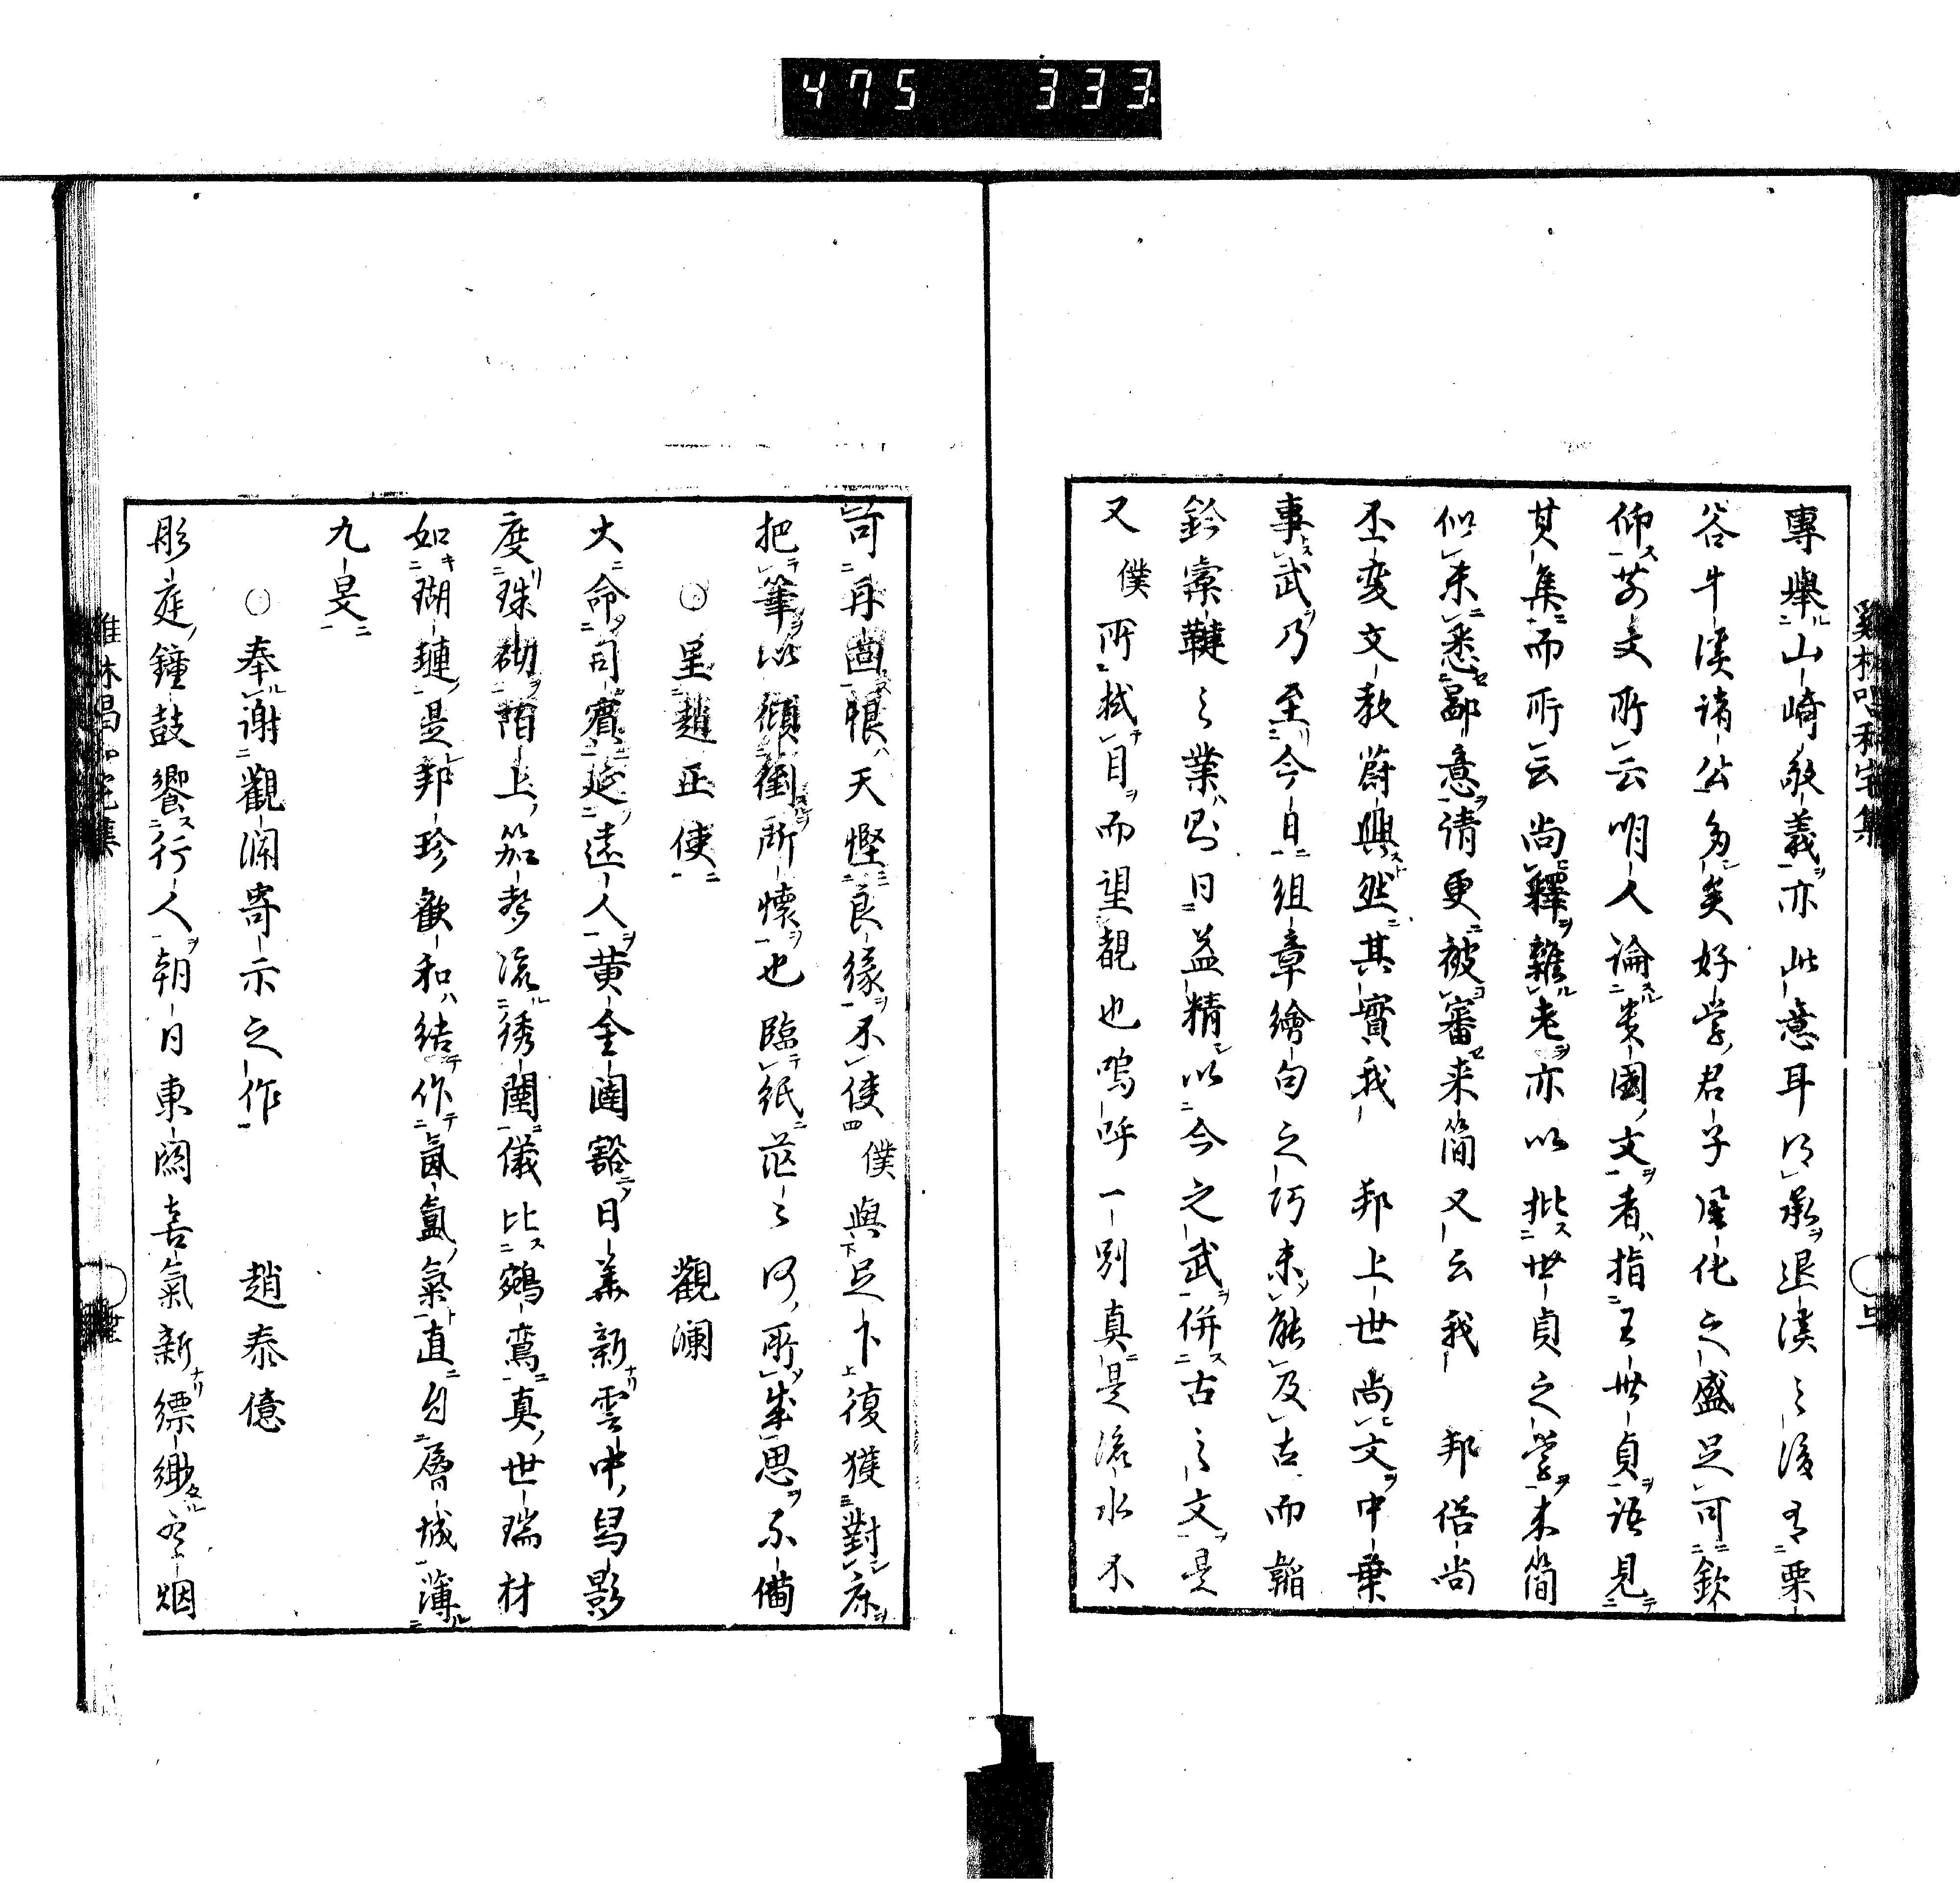 475 333
專舉山崎敬義亦此意耳以承退溪之後有栗
谷牛溪諸公多矣好學君子風化之盛足可欽
仰芳文所云明人論貴國文者指王世貞語見
其集而所云尚釋雜老亦以批世貞之學本簡
似未悉鄙意請更被審来簡又云我 邦俗尚
丕変文教蔚興然其實我 邦上世尚文中葉
事武乃至今日組章繪句之巧未能及古而韜
鈐櫜鞬之業則日益精以今之武併古之文是
又僕所拭目而望覩也嗚呼一別真是淡水不
可再面恨天慳良緣不使僕與足下復獲對床
把筆以傾倒所懷也臨紙茫之何所成思不備
○呈趙正使 觀瀾
大命司賓延遠人黄金闕豁日華新雲中舄影
度珠砌階上笳聲流綉闉儀比鵷鸞真世瑞材
如瑚璉是邦珍歡和結作氤氳氣直自層城薄
九旻
○奉謝觀瀾寄示之作 趙泰億
彤庭鐘鼓饗行人朝日東闕喜氣新縹緲烟